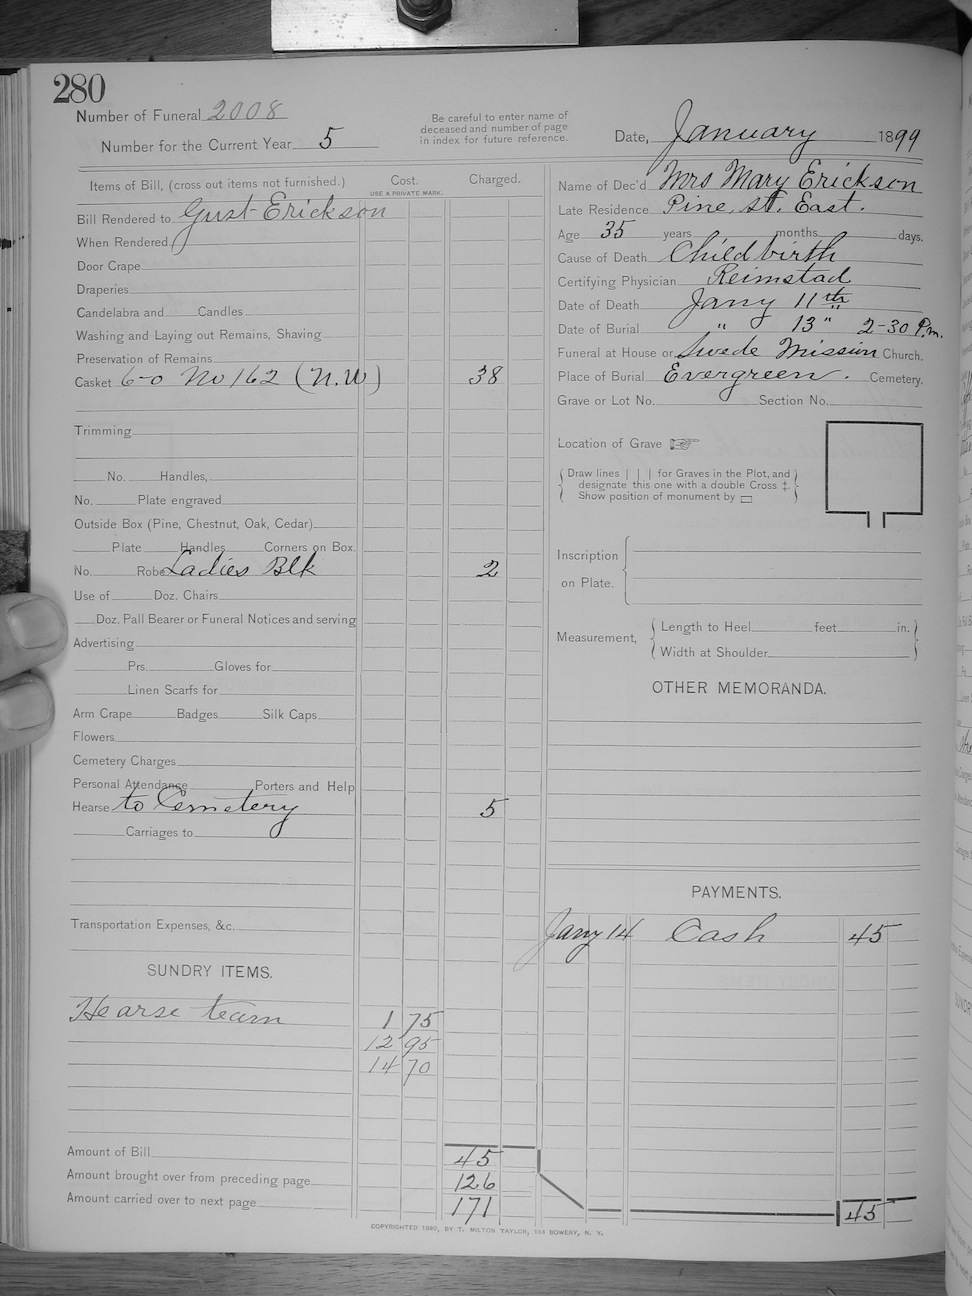 280
Number of Funeral 2008
Number for the Current Year 5
Be careful to enter name of
deceased and number of page
in index for future reference.
Date, January 1899
Items of Bill, (cross out items not furnished.) Cost. Charged.
USE A PRIVATE MARK.
Bill Rendered to Gust Erickson
When Rendered
Door Crape
Draperies
Candelabra and Candles
Washing and Laying out Remains, Shaving
Preservation of Remains
Casket 6-0 No 162 (N.W) 38
Trimming
No. Handles,
No. Plate engraved
Outside Box (Pine, Chestnut, Oak, Cedar)
Plate Handles Corners on Box.
No. Robe Ladies Blk 2
Use of Doz. Chairs
Doz. Pall Bearer or Funeral Notices and serving
Advertising
Prs. Gloves for
Linen Scarfs for
Arm Crape Badges Silk Caps
Flowers
Cemetery Charges
Personal Attendance Porters and Help
Hearse to Cemetery 5
Carriages to
Transportation Expenses, &c.
SUNDRY ITEMS.
Hearse team 1 75
12 95
14 70
Amount of Bill 45
Amount brought over from preceding page 126
Amount carried over to next page 171
Name of Dec'd Mrs Mary Erickson
Late Residence Pine St. East.
Age 35 years months days.
Cause of Death Child birth
Certifying Physician Reimstad
Date of Death Jany 11th
Date of Burial " 13" 2-30 P.m.
Funeral at House or Swede Mission Church.
Place of Burial Evergreen. Cemetery.
Grave or Lot No. Section No.
Location of Grave
Draw lines | | | for Graves in the Plot, and
designate this one with a double Cross ‡.
Show position of monument by ▭
Inscription
on Plate.
Measurement, Length to Heel feet in.
Width at Shoulder
OTHER MEMORANDA.
PAYMENTS.
Jany 14 Cash 45
45
COPYRIGHTED 1890, BY T. MILTON TAYLOR, 163 BOWERY, N. Y.